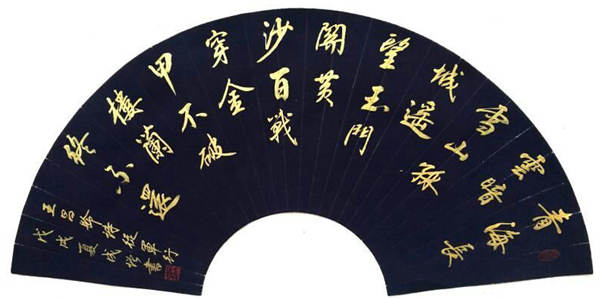 青海長
雲暗
雪山孤
城遥
望玉門
關黄
沙百戰
穿金
甲不破
樓蘭
終不還
王昌齡詩從軍行
戊戌夏成書